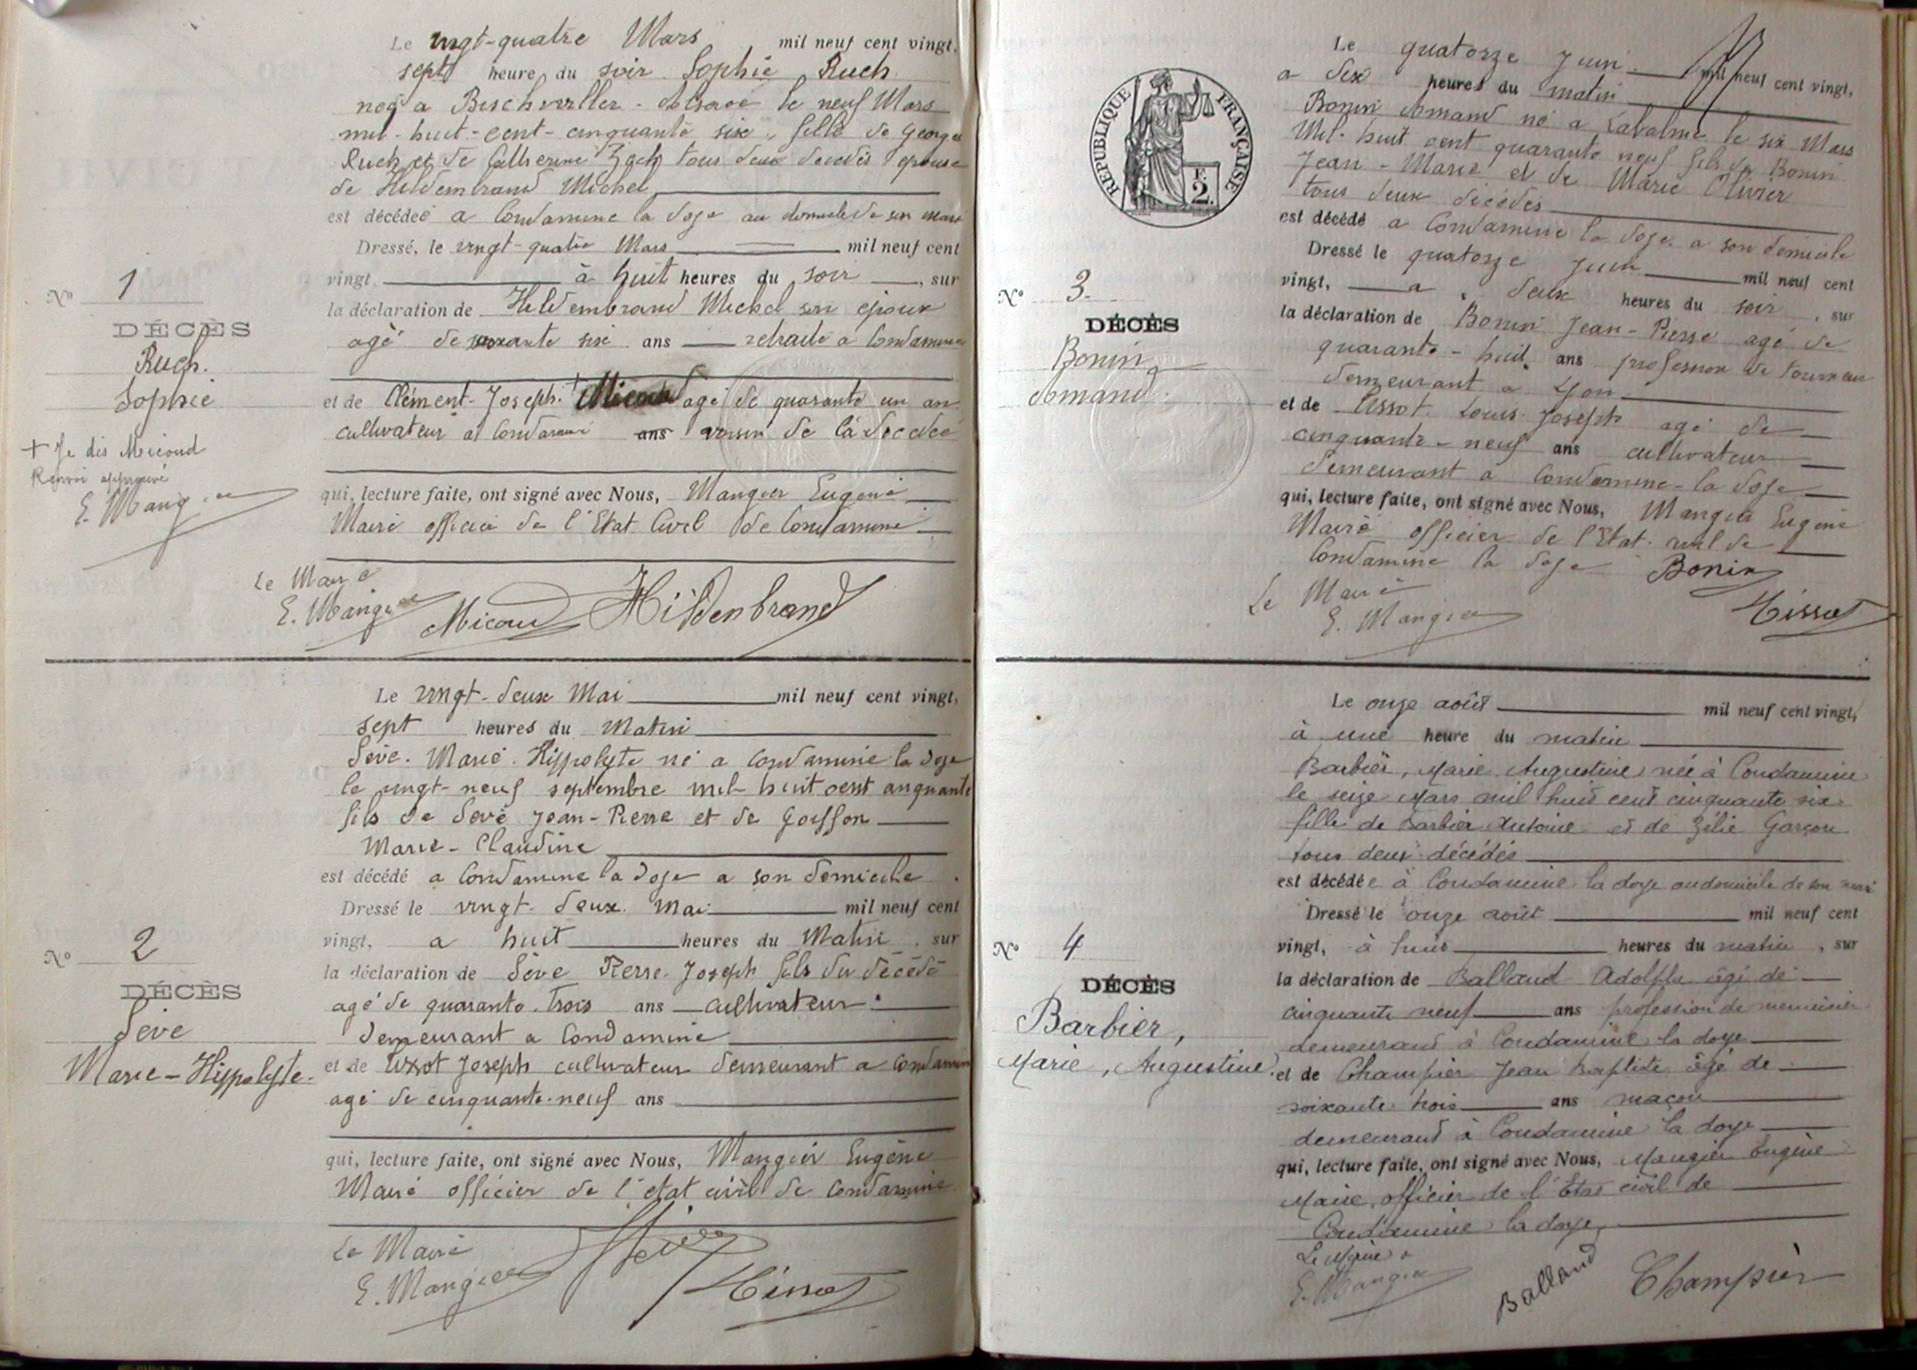 Le vingt-quatre Mars mil neuf cent vingt,
sept heure du soir Sophie Ruch
née a Bischwiller - Alsace le neuf Mars
mil-huit-cent-cinquante six, fille de Georges
Ruch et de Catherine tous deux décédés épouse
de Hildembrand Michel
est décédée a Condamine la Doye au domicile de son mari
Dressé, le vingt-quatre Mars mil neuf cent
vingt à huit heures du soir, sur
la déclaration de Hildembrand Michel son époux
agé de soixante six ans retraité a Condamine
et de Clément-Joseph + Micoud agé de quarante un an
cultivateur a Condamine ans voisin de la décédée
qui, lecture faite, ont signé avec Nous, Mangier Eugène
Maire officier de l'Etat Civil de Condamine
Le Maire
E. Mangier Micoud Hildenbrand
No 1
DÉCÈS
Ruch.
Sophie
+ Je dis Micoud
Renvoi approuvé
E. Mangier
Le vingt-deux Mai mil neuf cent vingt,
sept heures du Matin
Sève. Marie. Hippolyte né a Condamine la Doye
le vingt-neuf septembre mil-huit cent cinquante
fils de Sève Jean-Pierre et de Goiffon
Marie-Claudine
est décédé a Condamine la Doye a son domicile.
Dressé le vingt-deux Mai mil neuf cent
vingt, a huit heures du Matin, sur
la déclaration de Sève Pierre-Joseph fils du décédé
agé de quarante-trois ans cultivateur
demeurant a Condamine
et de Tissot Joseph cultivateur demeurant a Condamine
agé de cinquante-neuf ans
qui, lecture faite, ont signé avec Nous, Mangier Eugène
Maire officier de l'état civil de Condamine
Le Maire
E. Mangier Sève Tissot
No 2
DÉCÈS
Sève
Marie-Hippolyte.
RÉPUBLIQUE FRANÇAISE
F.
2.
Le quatorze Juin mil neuf cent vingt,
a dix heures du matin
Bonin Armand né a Lavalme le six Mars
Mil-huit cent quarante neuf fils de Bonin
Jean-Marie et de Marie Olivier
tous deux décédés
est décédé a Condamine la Doye a son domicile
Dressé le quatorze Juin mil neuf cent
vingt, a deux heures du soir, sur
la déclaration de Bonin Jean-Pierre agé de
quarante-huit ans profession de tourneur
demeurant a Lyon
et de Tissot Louis Joseph agé de
cinquante-neuf ans cultivateur
demeurant a Condamine-la Doye
qui, lecture faite, ont signé avec Nous, Mangier Eugène
Maire officier de l'Etat civil de
Condamine la Doye
Le Maire
E. Mangier Bonin Tissot
No 3.
DÉCÈS
Bonin
Armand.
Le onze août mil neuf cent vingt,
à une heure du matin
Barbier, Marie Augustine née à Condamine
le seize Mars mil huit cent cinquante six
fille de Barbier Antoine et de Zélie Garçon
tous deux décédés
est décédée à Condamine la doye au domicile de son mari
Dressé le onze août mil neuf cent
vingt, à huit heures du matin, sur
la déclaration de Balland Adolphe âgé de
cinquante neuf ans profession de menuisier
demeurant à Condamine la doye
et de Champier Jean Baptiste âgé de
soixante trois ans maçon
demeurant à Condamine la doye
qui, lecture faite, ont signé avec Nous, Mangier Eugène
Maire, officier de l'Etat civil de
Condamine la doye,
Le Maire
E. Mangier Balland Champier
No 4
DÉCÈS
Barbier,
Marie, Augustine.